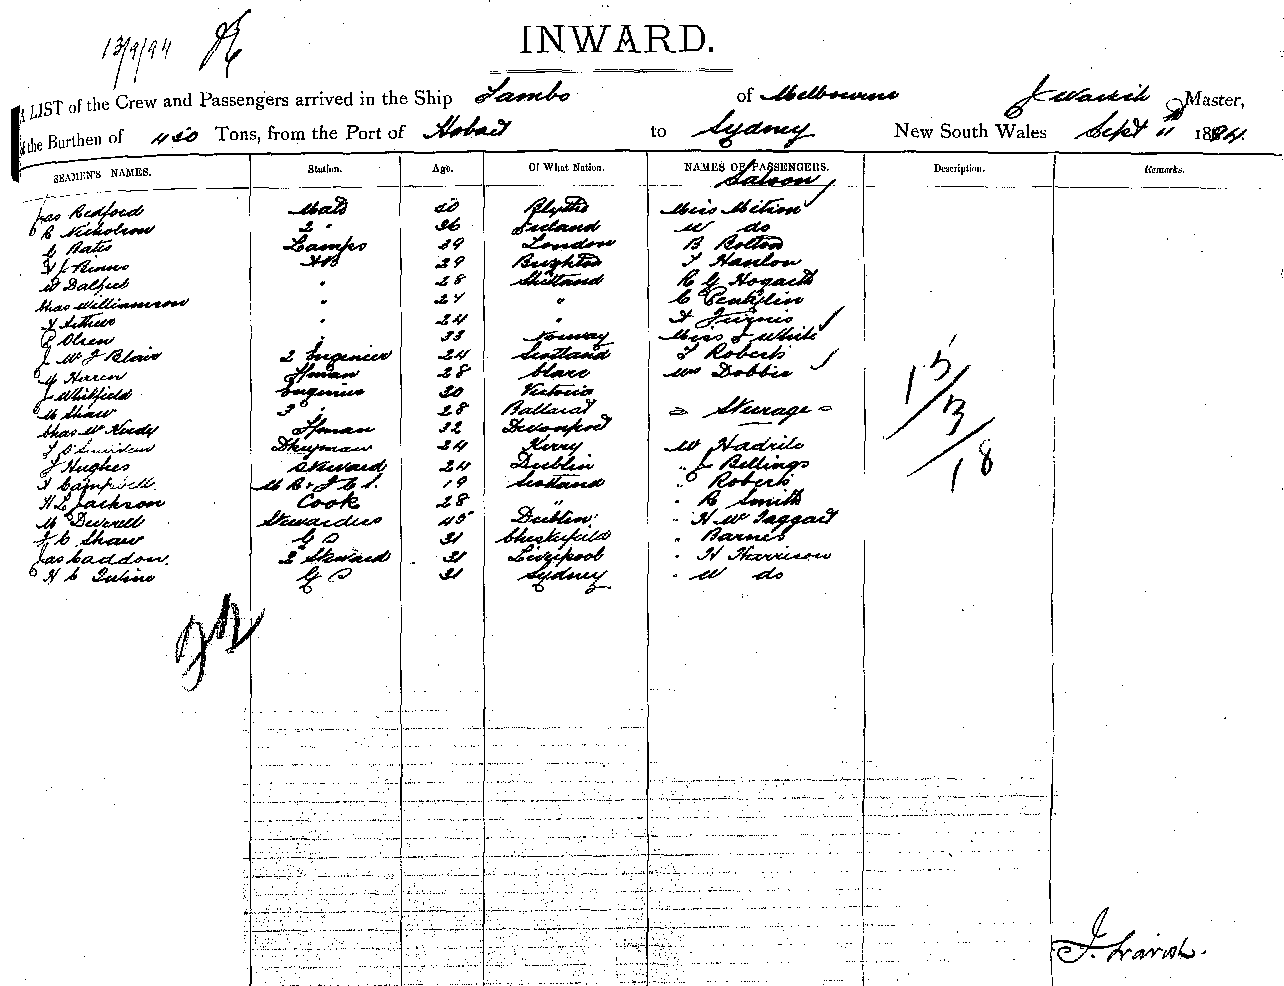 13/9/94
INWARD.
A LIST of the Crew and Passengers arrived in the Ship Tambo of Melbourne J Master,
the Burthen of 450 Tons, from the Port of Hobart to Sydney New South Wales Sept 11th 1894.
SEAMEN'S NAMES. Station. Age. Of What Nation. NAMES OF PASSENGERS. Description. Remarks.
Saloon
Jas Redford Mate 40 Blythe Miss Mition
R Nicholson 2 " 36 Ireland " do
G Bates Lamps 39 London B Bolton
H J Binns AB 29 Brighton T Hanlon
W Dalziel " 28 Shetland R G Hogarth
Chas Williamson " 24 " C
A " 24 " A
P Olsen " 33 Norway Miss J White
J W J Blair 2 Engineer 24 Scotland T Roberts
M Herren Ffman 28 Clare Mrs Dobbie
J Whitfield Engineer 30 Victoria
M Shaw 3 " 28 Ballarat = Steerage =
Chas W Ffman 32 Devonport
24 Kerry W Hadrile
J Hughes Steward 24 Dublin " J Billings
A Campbell 19 Scotland " Roberts
H L Jackson Cook 28 " " R Smith
M Deverell Stewardess 45 Dublin " H W Taggart
J C Shaw G S 31 Chesterfield " Barnes
Jas Caddon 2 Steward 31 Liverpool " H Harrison
H C G S 31 Sydney " " do
22
15/
13/
18